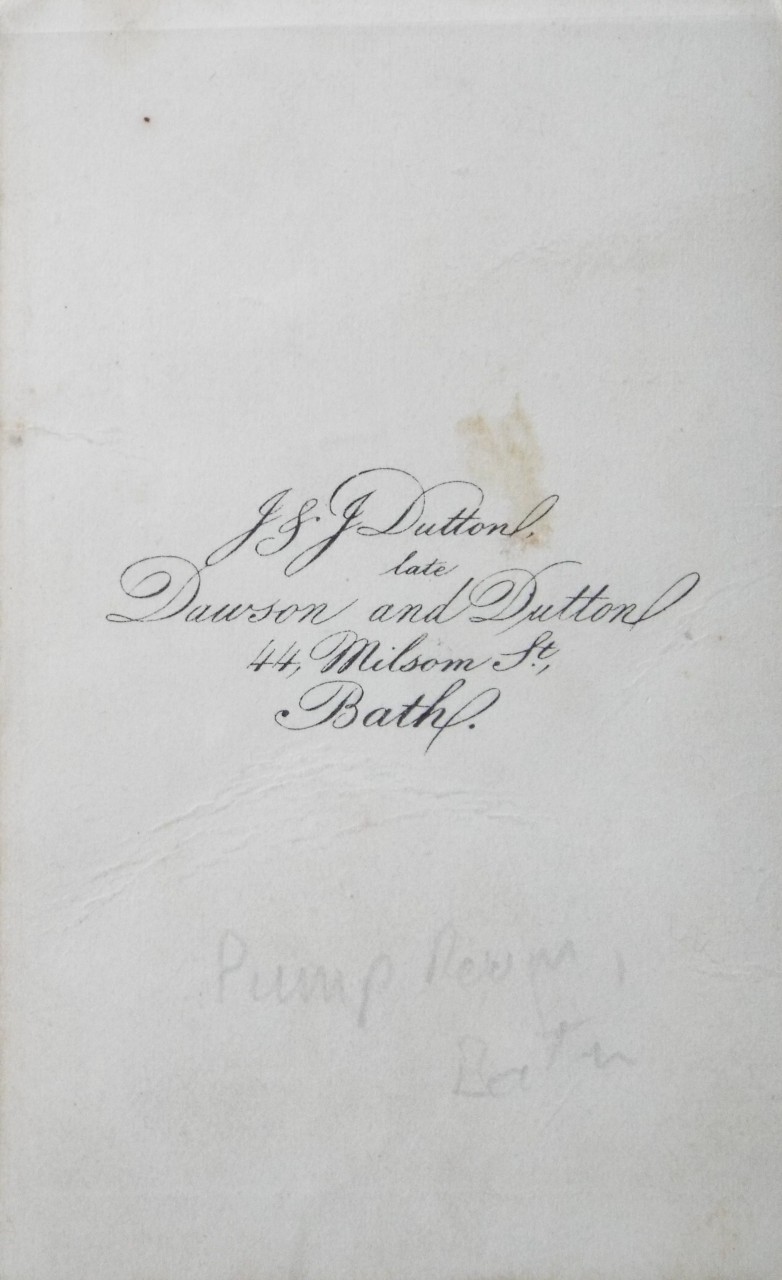 J & J Dutton,
late
Dawson and Dutton
44, Milsom St.,
Bath.
Pump Room,
Bath